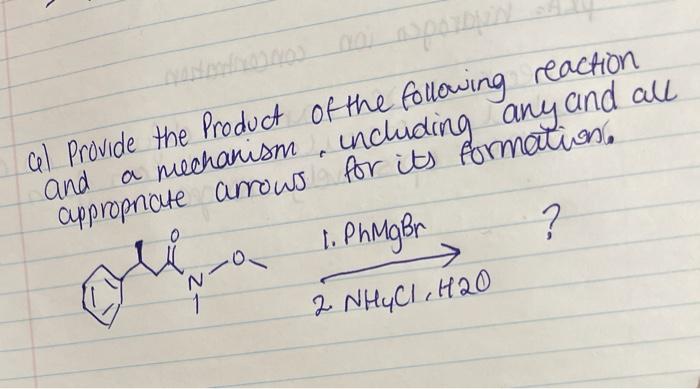 a) Provide the Product of the following reaction
and a mechanism, including any and all
appropriate arrows for its formation.
O
N
O
1. PhMgBr
?
2. NH4Cl, H2O